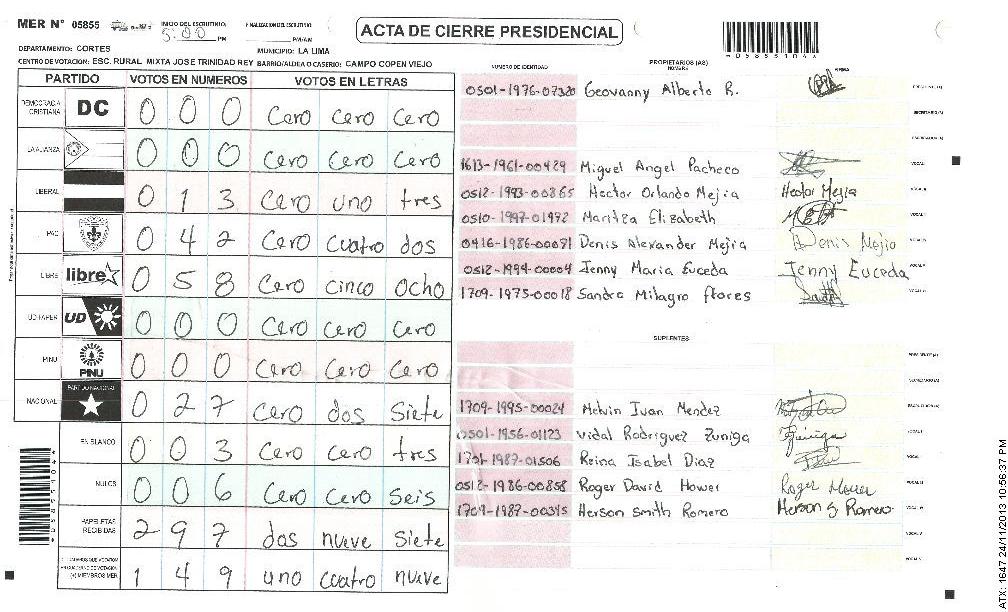 MER N° 05855 INICIO DEL ESCRUTINIO: 5:00 PM FINALIZACION DEL ESCRUTINIO: PM/AM
ACTA DE CIERRE PRESIDENCIAL
DEPARTAMENTO: CORTES MUNICIPIO: LA LIMA
CENTRO DE VOTACION: ESC. RURAL MIXTA JOSE TRINIDAD REY BARRIO/ALDEA O CASERIO: CAMPO COPEN VIEJO
PARTIDO VOTOS EN NUMEROS VOTOS EN LETRAS
DEMOCRACIA CRISTIANA DC 0 0 0 Cero Cero Cero
LA ALIANZA 0 0 0 Cero Cero Cero
LIBERAL 0 1 3 Cero uno tres
PAC 0 4 2 Cero cuatro dos
LIBRE libre 0 5 8 Cero cinco ocho
UD FAPER UD 0 0 0 Cero Cero Cero
PINU PINU 0 0 0 Cero Cero Cero
NACIONAL PARTIDO NACIONAL 0 2 7 Cero dos Siete
EN BLANCO 0 0 3 Cero Cero tres
NULOS 0 0 6 Cero Cero seis
PAPELETAS RECIBIDAS 2 9 7 dos nueve siete
(+) MIEMBROS MER 1 4 9 uno cuatro nueve
NUMERO DE IDENTIDAD PROPIETARIOS (AS) NOMBRE FIRMA
0501-1976-07320 Geovanny Alberto R.
1613-1961-00429 Miguel Angel Pacheco
0512-1993-00865 Hector Orlando Mejia Hector Mejia
0510-1997-01972 Maritza Elizabeth
0416-1986-00081 Denis Alexander Mejia Denis Mejia
0512-1994-00004 Jenny Maria Euceda Jenny Euceda
1709-1975-00018 Sandra Milagro flores
SUPLENTES
1709-1995-00024 Melvin Ivan Mendez
0501-1956-01123 Vidal Rodriguez Zuniga
1701-1987-01506 Reina Isabel Diaz
0512-1986-00858 Roger David Hower Roger Hower
1709-1987-00345 Herson Smith Romero Herson S Romero
*05855104*
ATX: 1647 24/11/2013 10:56:37 PM